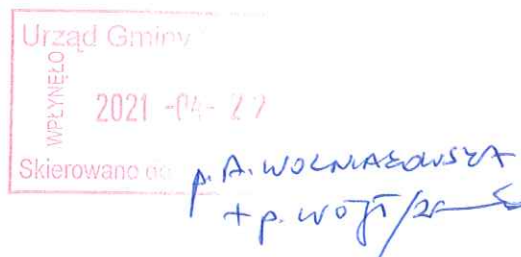 Urząd Gminy
WPŁYNĘŁO
2021 -04- 22
Skierowano do
p. A. WOLNIAKOWSKA
+ p. WÓJT